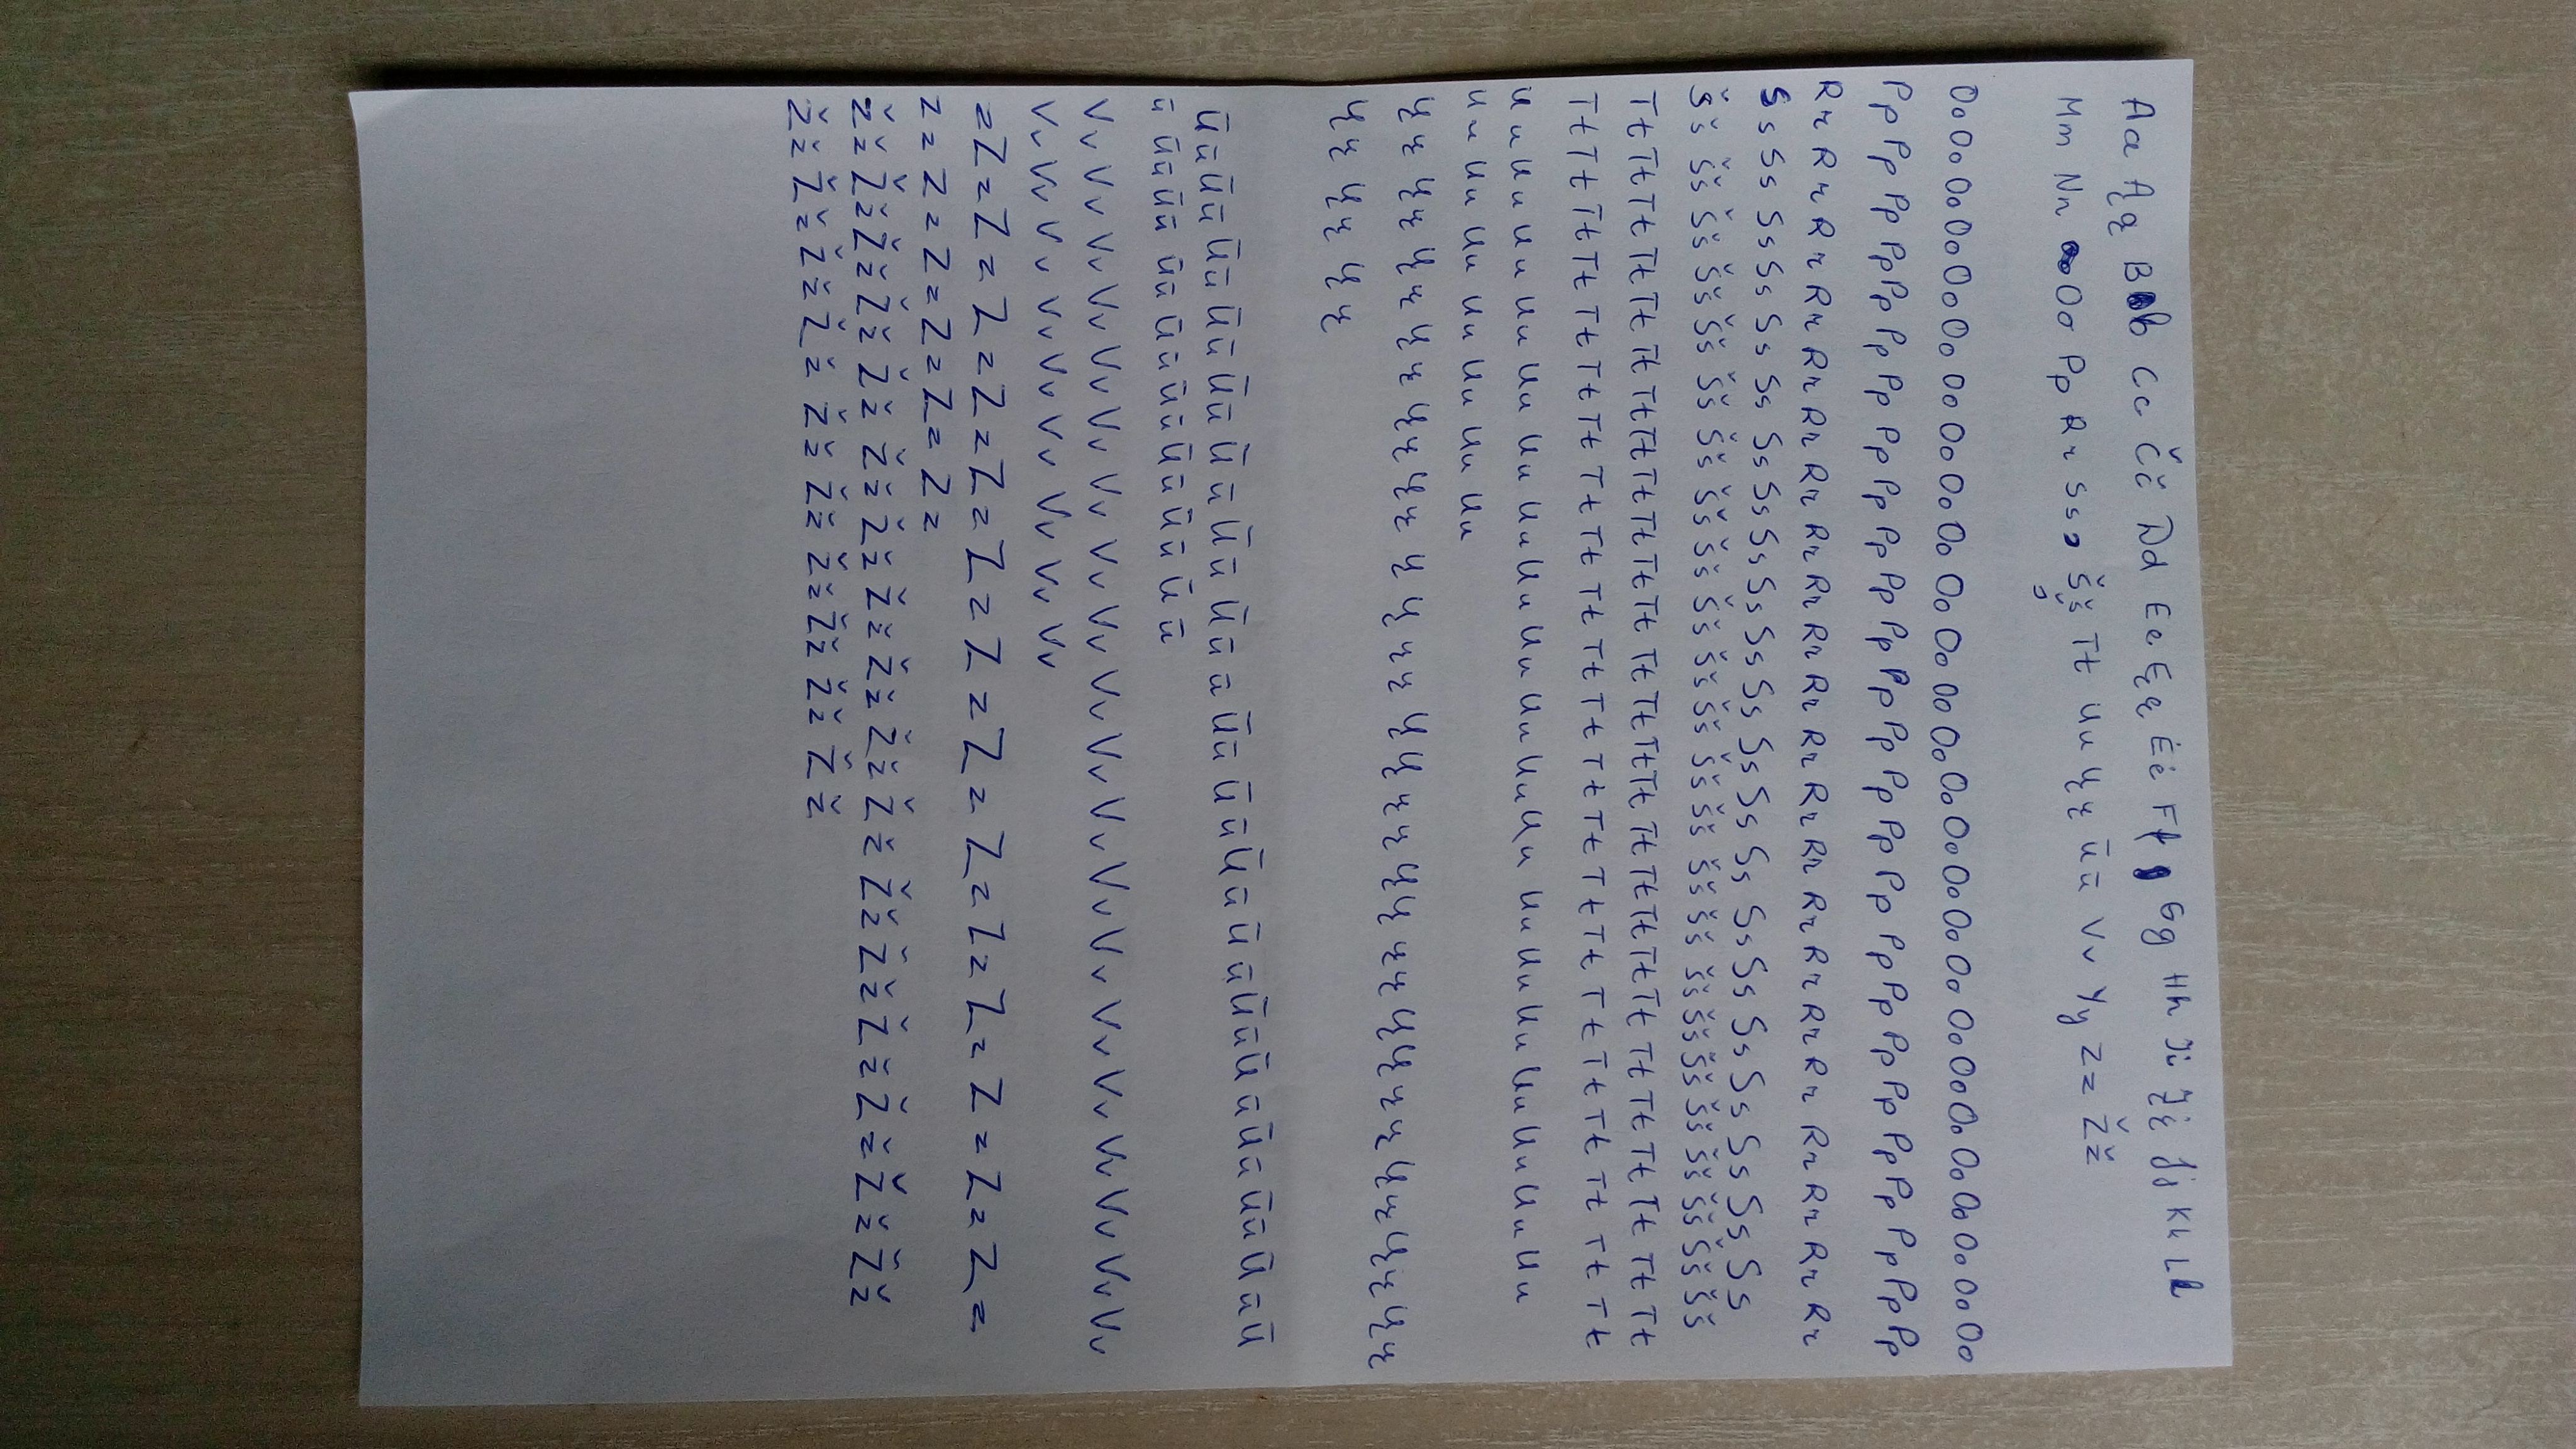 Aa Ąą B b Cc Čč Dd Ee Ęę Ėė Ff Gg Hh Ii Įį Jj Kk Ll
Mm Nn Oo Pp Rr Ss Šš Tt Uu Ųų Ūū Vv Yy Zz Žž
Oo Oo Oo Oo Oo Oo Oo Oo Oo Oo Oo Oo Oo Oo Oo Oo Oo Oo Oo Oo Oo Oo Oo Oo Oo Oo Oo
Pp Pp Pp Pp Pp Pp Pp Pp Pp Pp Pp Pp Pp Pp Pp Pp Pp Pp Pp Pp Pp Pp Pp Pp
Rr Rr Rr Rr Rr Rr Rr Rr Rr Rr Rr Rr Rr Rr Rr Rr Rr Rr Rr Rr Rr Rr
Ss Ss Ss Ss Ss Ss Ss Ss Ss Ss Ss Ss Ss Ss Ss Ss Ss Ss Ss Ss Ss Ss Ss
Šš Šš Šš Šš Šš Šš Šš Šš Šš Šš Šš Šš Šš Šš Šš Šš Šš Šš Šš Šš Šš Šš Šš Šš Šš Šš
Tt Tt Tt Tt Tt Tt Tt Tt Tt Tt Tt Tt Tt Tt Tt Tt Tt Tt Tt Tt Tt Tt Tt Tt Tt Tt
Tt Tt Tt Tt Tt Tt Tt Tt Tt Tt Tt Tt Tt Tt Tt Tt Tt Tt Tt Tt Tt
uu Uu Uu Uu Uu Uu Uu Uu Uu Uu Uu Uu Uu Uu Uu Uu Uu Uu Uu Uu Uu
Uu Uu Uu Uu Uu Uu Uu
Ųų Ųų Ųų Ųų Ųų Ųų Ųų Ųų Ųų Ųų Ųų Ųų Ųų Ųų Ųų Ųų Ųų Ųų Ųų Ųų
Ųų Ųų Ųų
Ūū Ūū Ūū Ūū Ūū Ūū Ūū Ūū ū Ūū Ūū Ūū Ūū Ūū Ūū Ūū Ūū Ūū Ū
ū Ūū Ūū Ūū Ūū Ūū Ūū Ūū Ūū
Vv Vv Vv Vv Vv Vv Vv Vv Vv Vv Vv Vv Vv Vv Vv Vv Vv Vv Vv Vv
Vv Vv Vv Vv Vv Vv Vv Vv Vv
zZzZzZzZzZzZzZzZzZzZzZzZzZzZz
zz Zz Zz Zz Zz Zz
Žž Žž Žž Žž Žž Žž Žž Žž Žž Žž Žž Žž Žž Žž Žž Žž Žž
Žž Žž Žž Žž Žž Žž Žž Žž Žž Žž